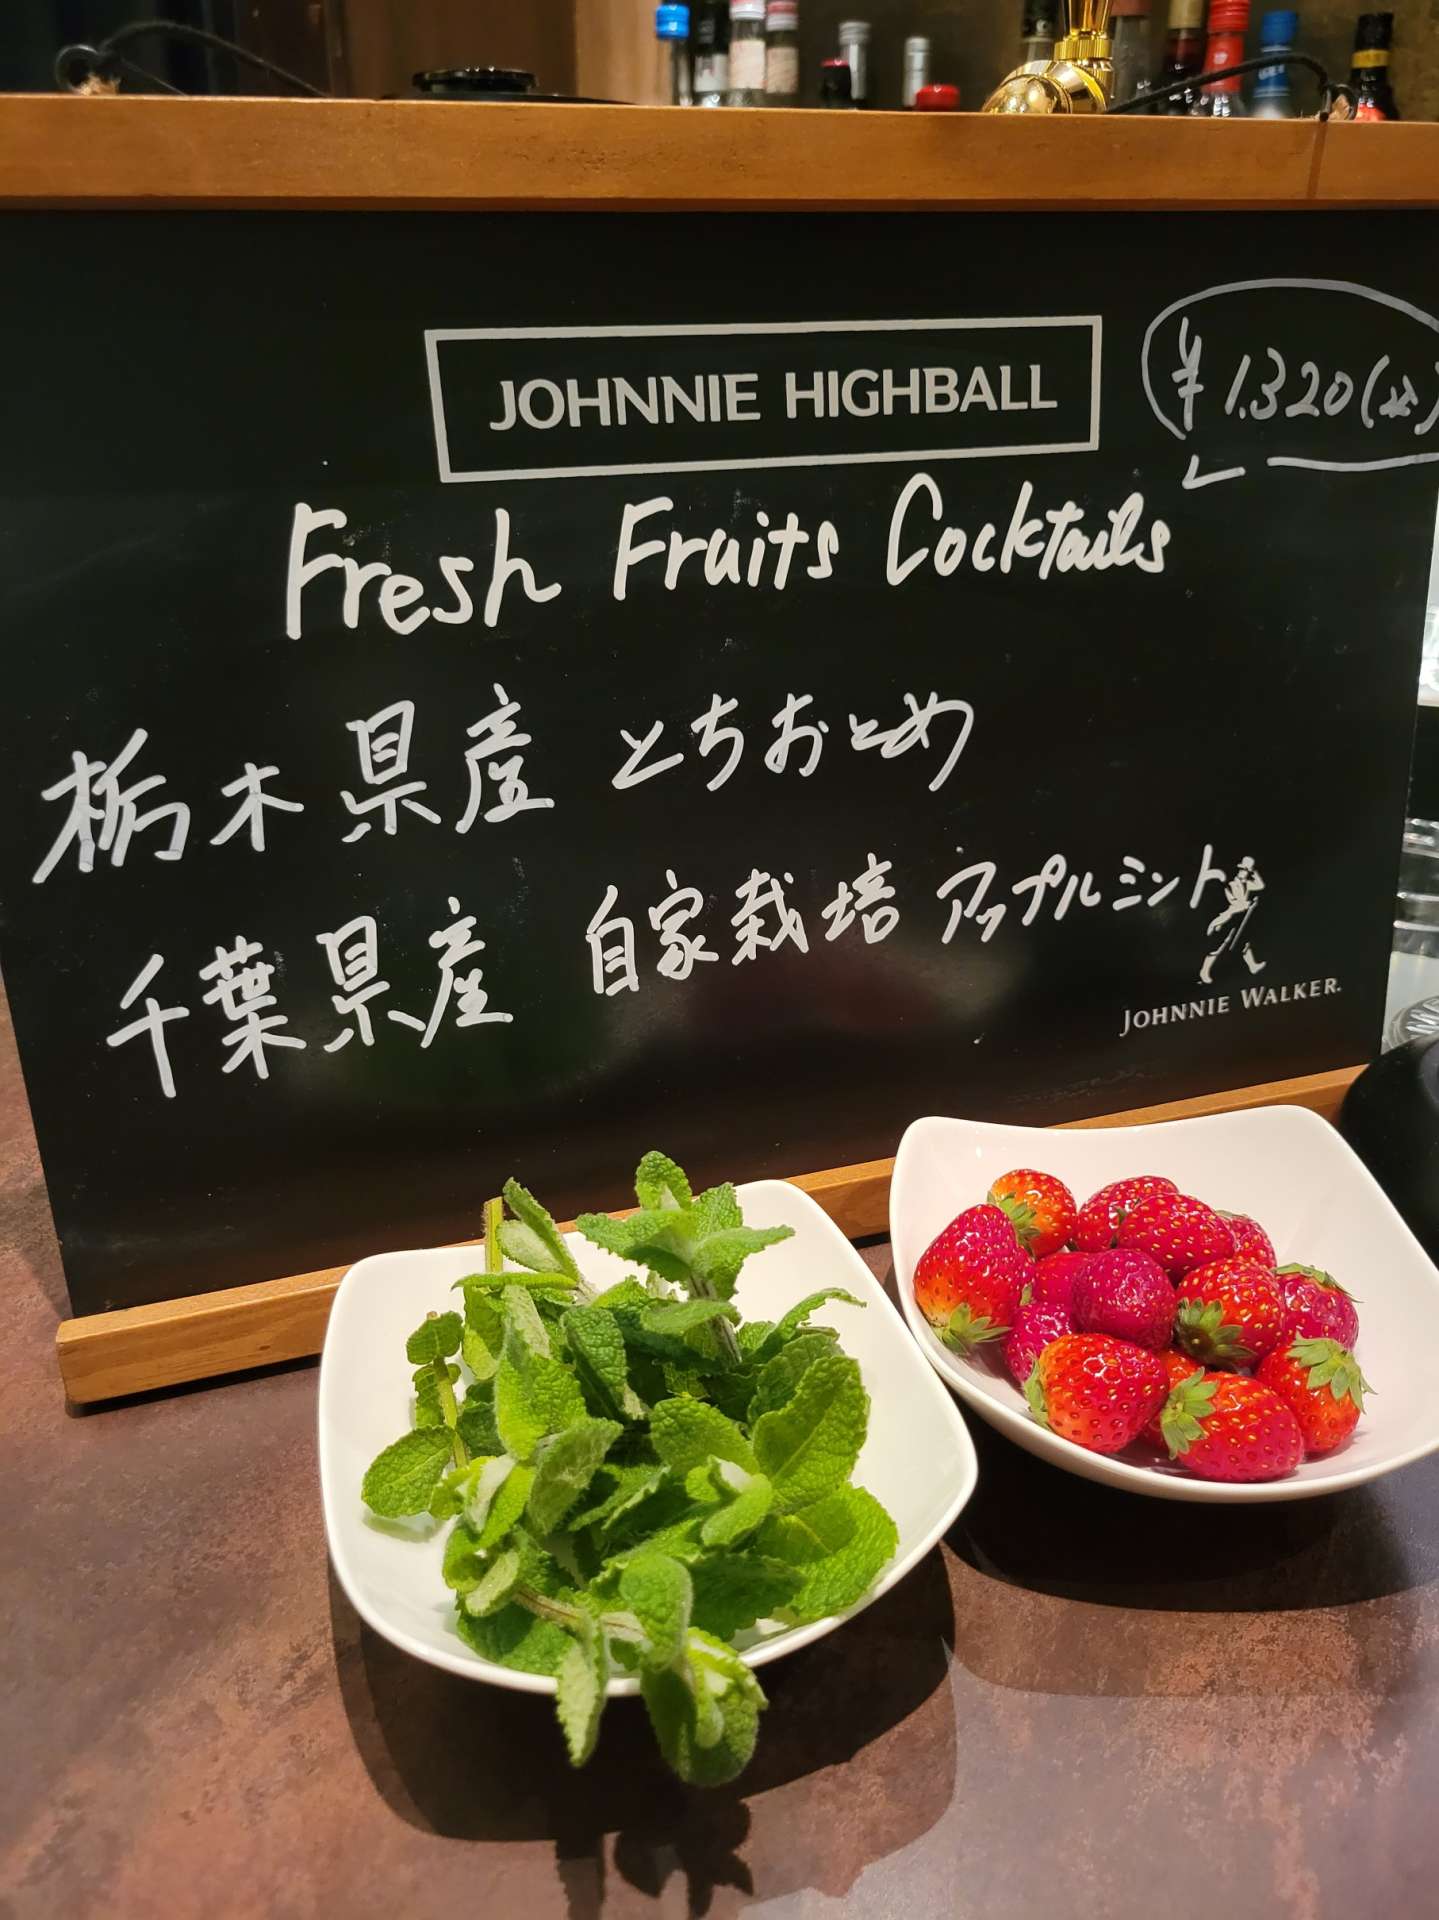 JOHNNIE HIGHBALL
¥1,320(込)
Fresh Fruits Cocktails
栃木県産 とちおとめ
千葉県産 自家栽培 アップルミント
JOHNNIE WALKER.